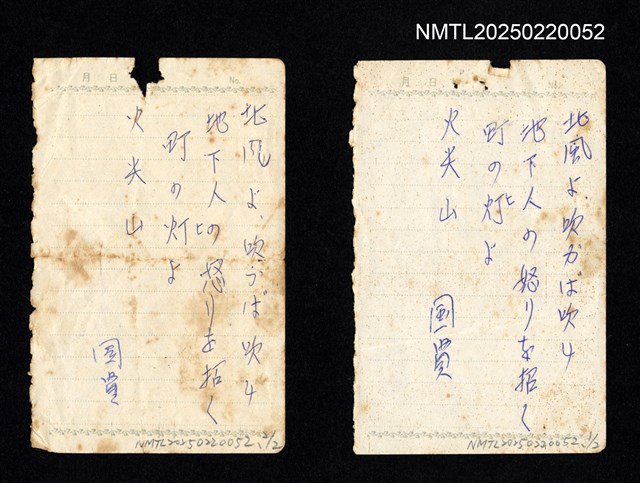 NMTL20250220052
月 日 No.
北風よ、吹かば吹け
地下人の怒りを招く
町の灯よ
ヒ
火尖山
国貴
NMTL20250220052, 2/2
月 日 No.
北風よ吹かば吹け
地下人の怒りを招く
町の灯よ
ヒ
火尖山
国貴
NMTL20250220052, 1/2